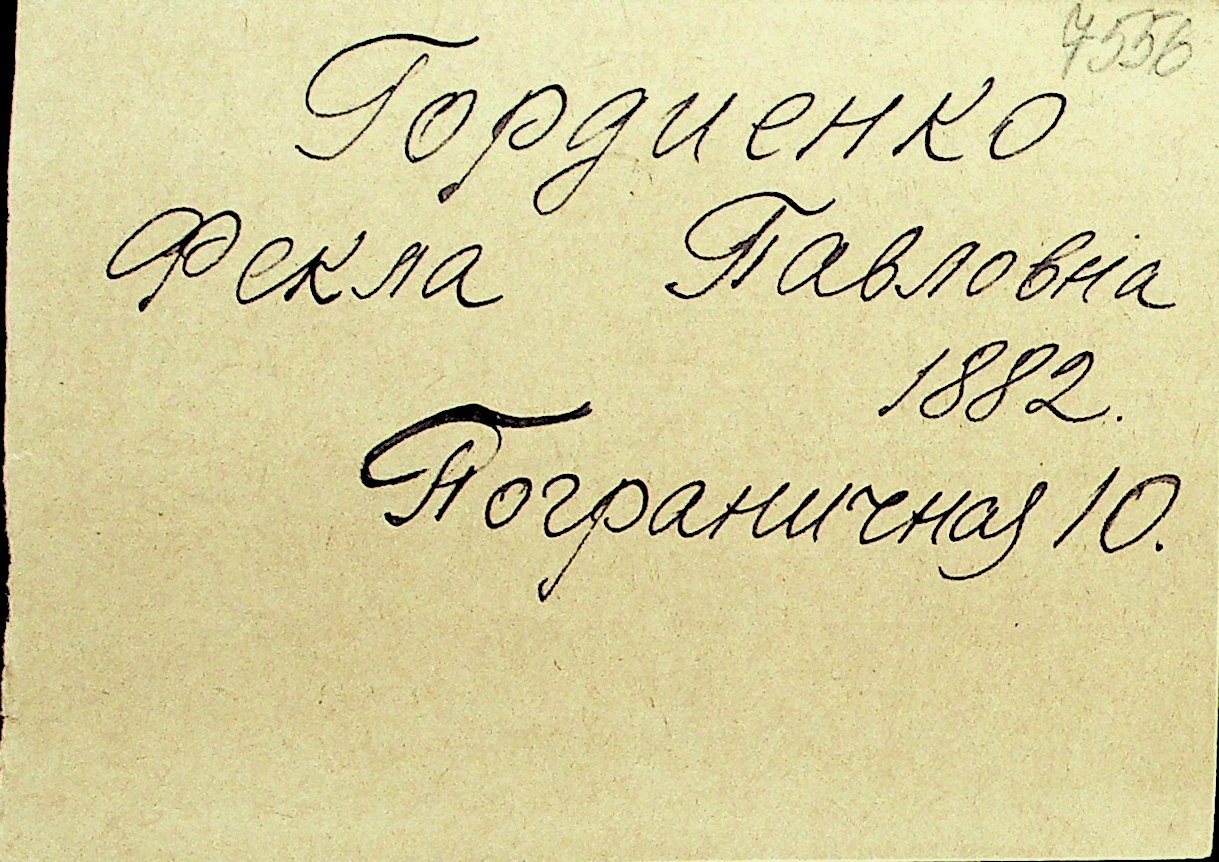 7556
Гордиенко
Фекла Павловна
1882.
Пограничная 10.